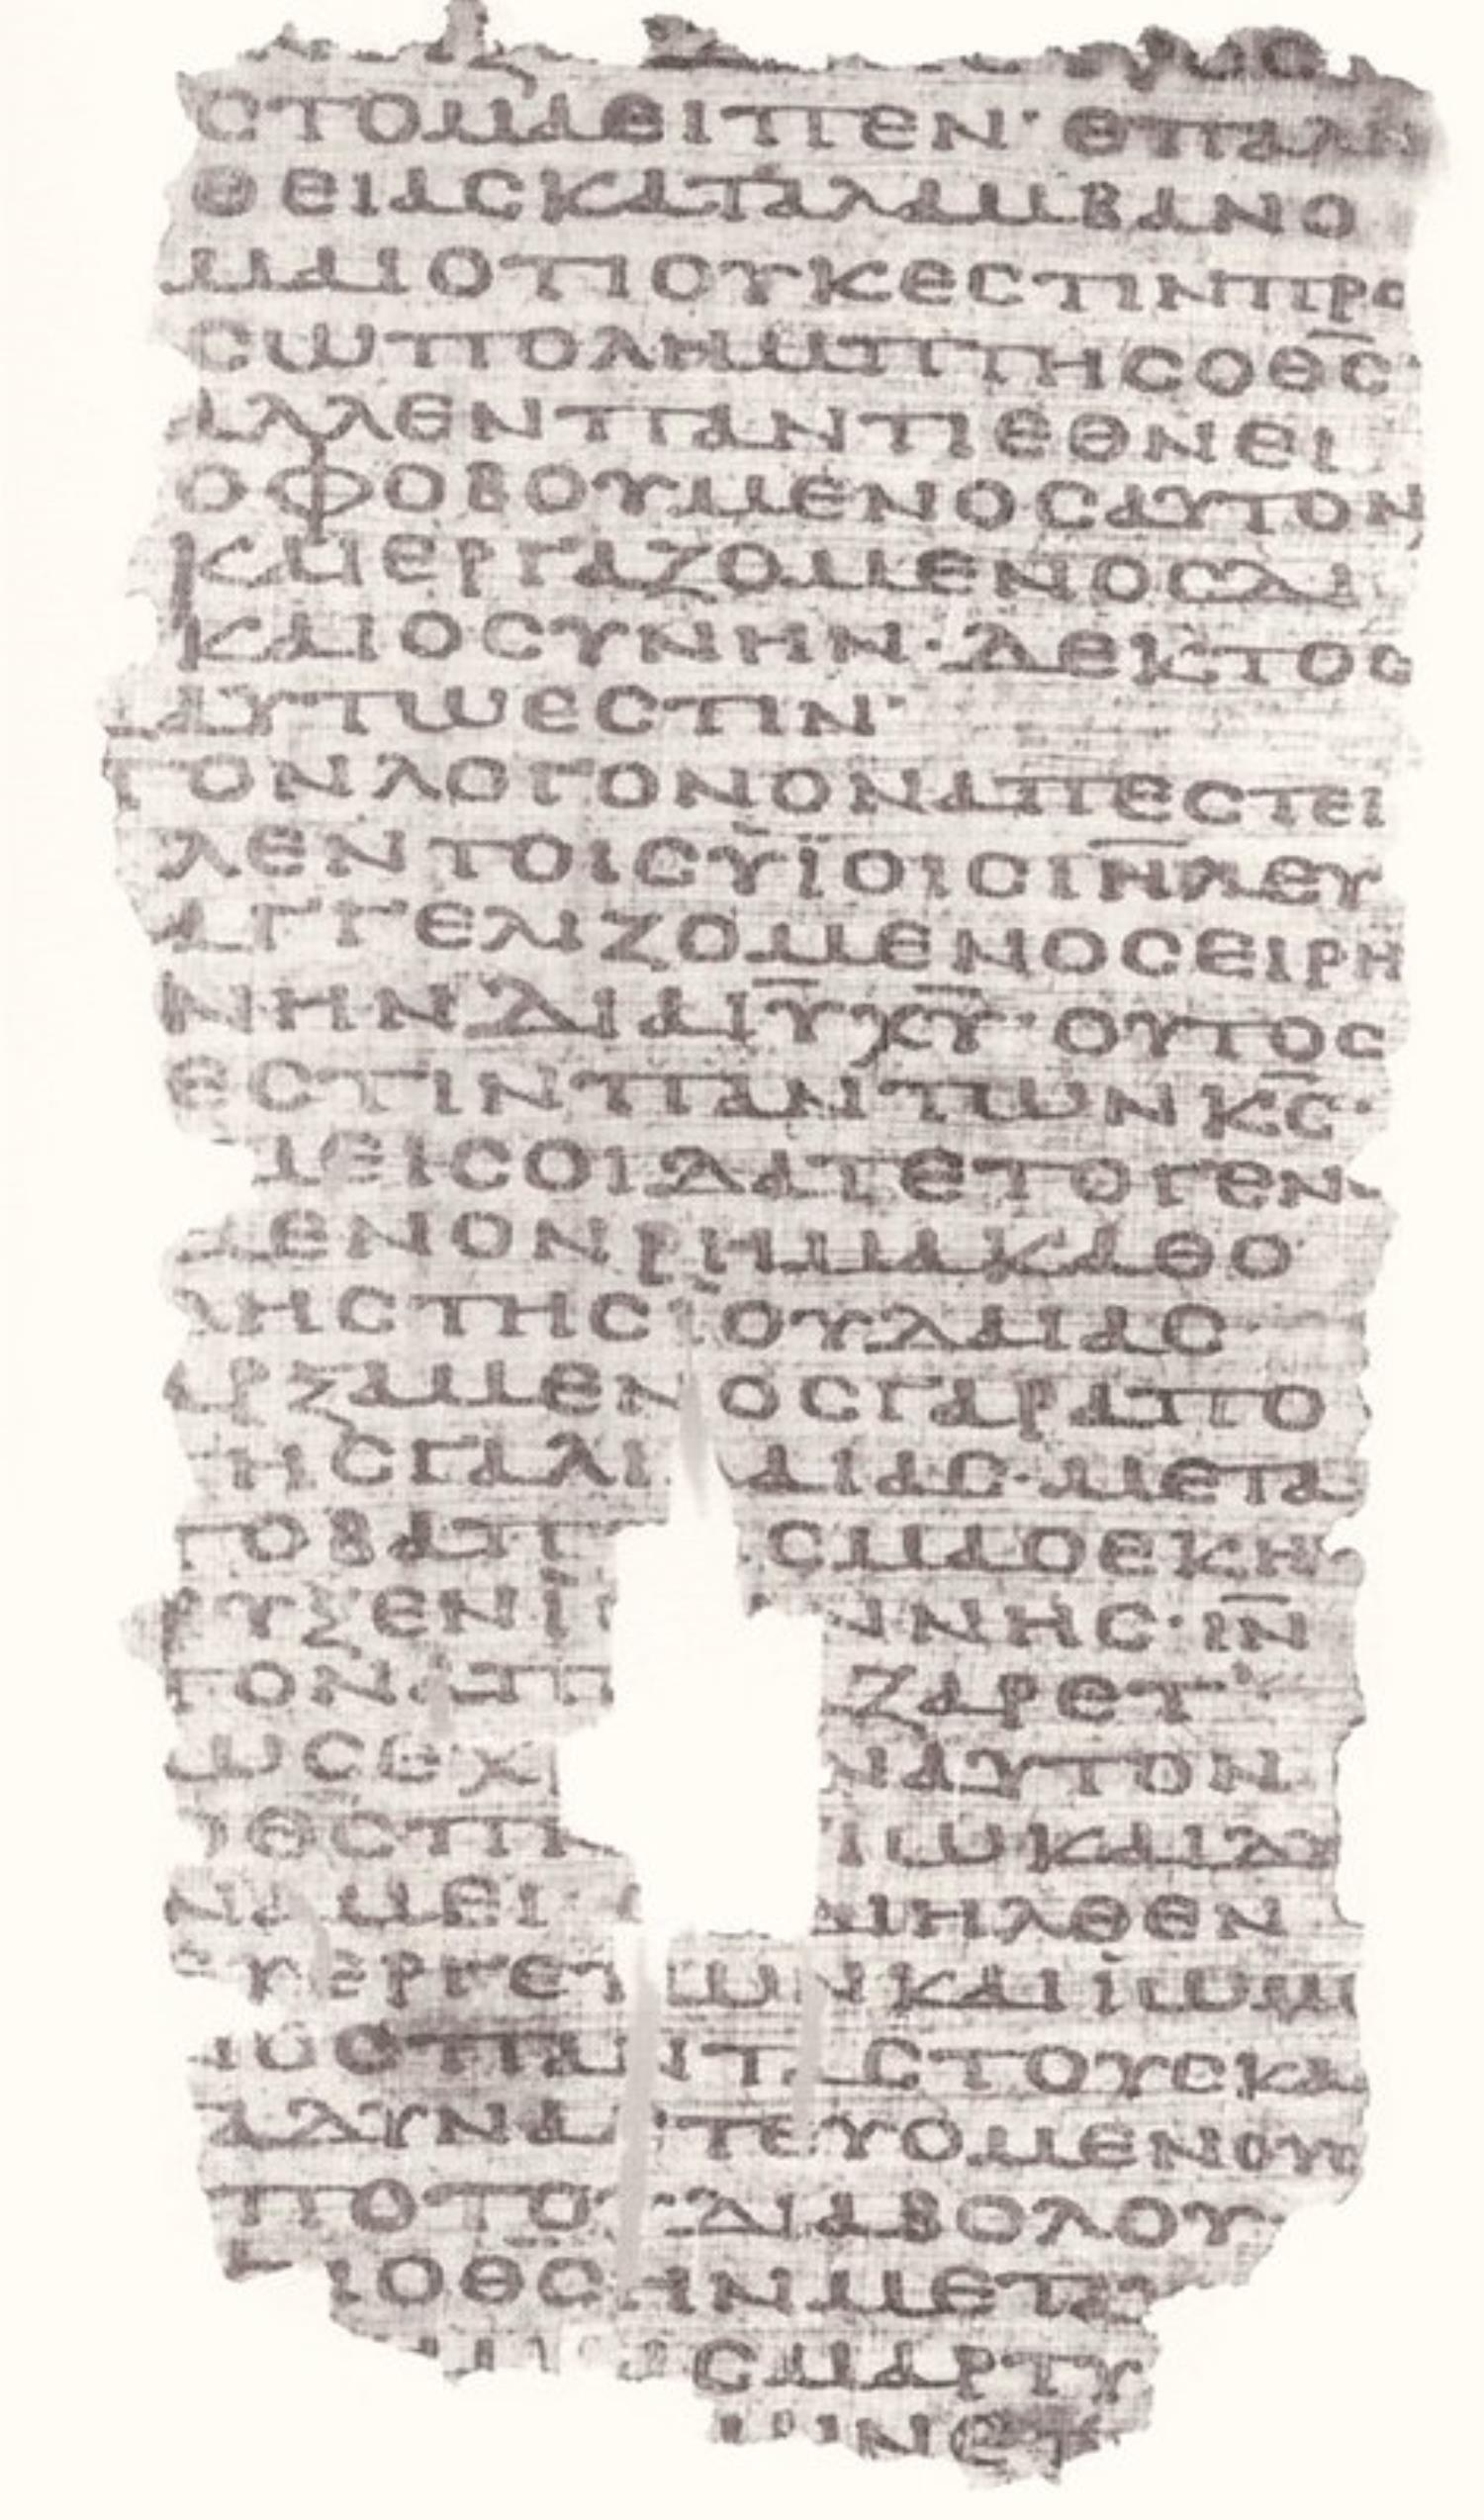 ϹΤΟΜΑΕΙΠΕΝ· ΕΠΑΛΗ
ΘΕΙΑϹΚΑΤΑΛΑΜΒΑΝΟ
ΜΑΙΟΤΙΟΥΚΕϹΤΙΝΠΡΟ
ϹΩΠΟΛΗΜΠΤΗϹΟΘ̅Ϲ̅·
ΑΛΛΕΝΠΑΝΤΙΕΘΝΕΙ
ΟΦΟΒΟΥΜΕΝΟϹΑΥΤΟΝ
ΚΑΙΕΡΓΑΖΟΜΕΝΟϹΔΙ
ΚΑΙΟϹΥΝΗΝ·ΔΕΚΤΟϹ
ΑΥΤΩΕϹΤΙΝ·
ΤΟΝΛΟΓΟΝΟΝΑΠΕϹΤΕΙ
ΛΕΝΤΟΙϹΥΪΟΙϹΙ̅Η̅Λ̅ΕΥ
ΑΓΓΕΛΙΖΟΜΕΝΟϹΕΙΡΗ
ΝΗΝΔΙΑΙ̅Υ̅Χ̅Υ̅· ΟΥΤΟϹ
ΕϹΤΙΝΠΑΝΤΩΝΚ̅Ϲ̅·
ΜΕΙϹΟΙΔΑΤΕΤΟΓΕΝ
ΜΕΝΟΝΡΗΜΑΚΑΘΟ
ΛΗϹΤΗϹΪΟΥΔΑΙΑϹ·
ΑΡΞΑΜΕΝΟϹΓΑΡΑΠΟ
ΤΗϹΓΑΛΙ ΛΑΙΑϹ·ΜΕΤΑ
ΤΟΒΑΠΤ ϹΜΑΟΕΚΗ
ΡΥΞΕΝΪ ΝΝΗϹ·Ι̅Ν̅
ΤΟΝΑΠ ΖΑΡΕΤ·
ΩϹΕΧ ΝΑΥΤΟΝ
ΟΘ̅Ϲ̅ΠΝ ΙΩΚΑΙΔΥ
ΝΑΜΕΙ ΔΙΗΛΘΕΝ
ΕΥΕΡΓΕΤΩΝΚΑΙΪΩΜ
ΝΟϹΠΑΝΤΑϹΤΟΥϹΚΑ
ΤΑΔΥΝΑϹΤΕΥΟΜΕΝΟΥϹ
ΠΟΤΟΥΔΙΑΒΟΛΟΥ·
ΤΙΟΘ̅Ϲ̅ΗΝΜΕΤΑ
ϹΜΑΡΤΥ
ΝΕΤ